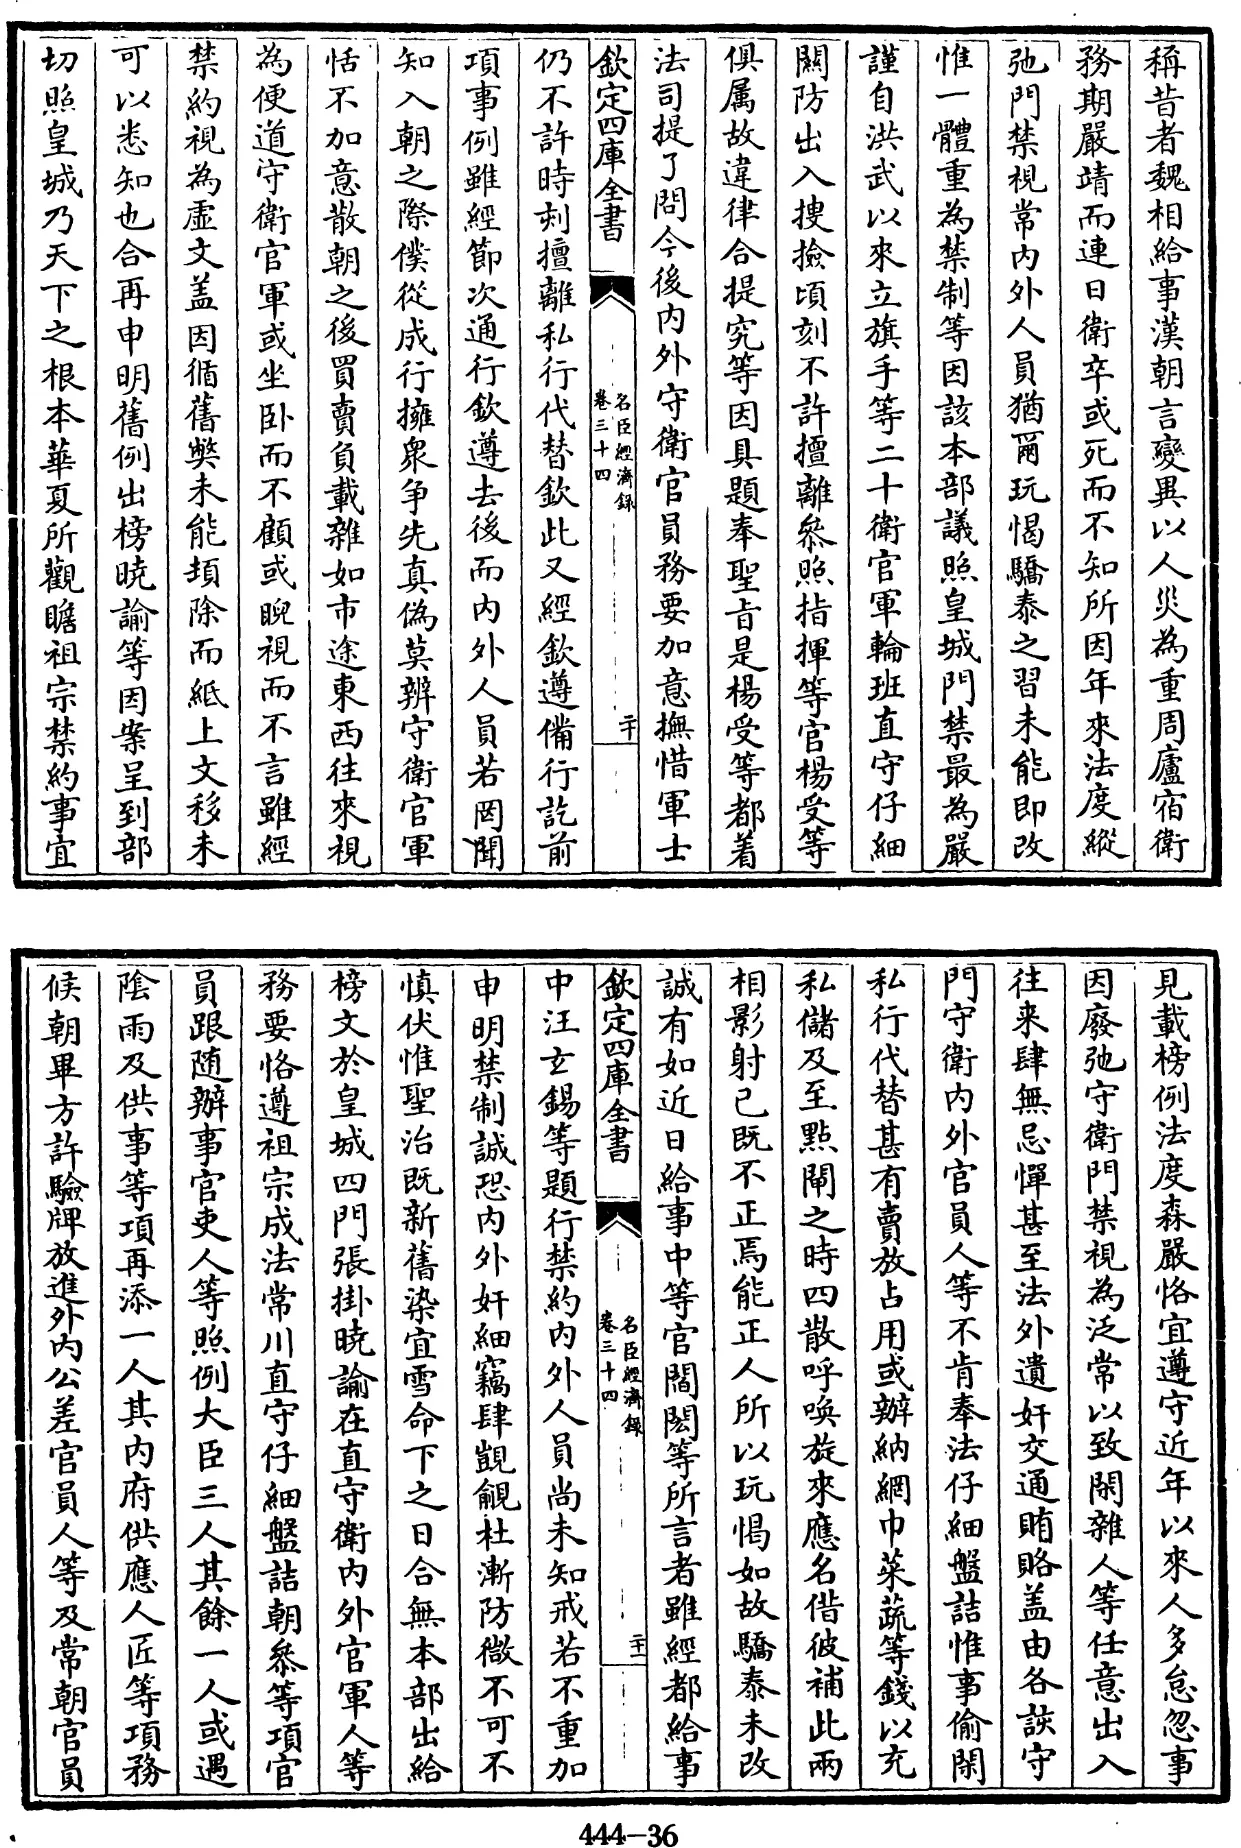 稱昔者魏相給事漢朝言變異以人災為重周廬宿衛
務期嚴靖而連日衛卒或死而不知所因年來法度縱
弛門禁視常内外人員猶爾玩愒驕泰之習未能即改
惟一體重為禁制等因該本部議照皇城門禁最為嚴
謹自洪武以來立旗手等二十衛官軍輪班直守仔細
關防出入搜撿頃刻不許擅離叅照指揮等官楊受等
俱属故違律合提究等因具題奉聖旨是楊受等都着
法司提了問今後内外守衛官員務要加意撫惜軍士
欽定四庫全書
名臣經濟録
卷三十四
二十
仍不許時刻擅離私行代替欽此又經欽遵備行訖前
項事例雖經節次通行欽遵去後而内外人員若罔聞
知入朝之際僕從成行擁衆争先真偽莫辨守衛官軍
恬不加意散朝之後買賣負載雜如市途東西往來視
為便道守衛官軍或坐卧而不顧或睨視而不言雖經
禁約視為虚文盖因循舊弊未能頓除而紙上文移未
可以悉知也合再申明舊例出榜曉諭等因案呈到部
切照皇城乃天下之根本華夏所觀瞻祖宗禁約事宜
見載榜例法度森嚴恪宜遵守近年以來人多怠忽事
因廢弛守衛門禁視為泛常以致閑雜人等任意出入
往来肆無忌憚甚至法外遺奸交通賄賂盖由各該守
門守衛内外官員人等不肯奉法仔細盤詰惟事偷閑
私行代替甚有賣放占用或辦納網巾菜蔬等錢以充
私儲及至點閘之時四散呼喚旋來應名借彼補此兩
相影射己既不正焉能正人所以玩愒如故驕泰未改
誠有如近日給事中等官閻閎等所言者雖經都給事
欽定四庫全書
名臣經濟録
卷三十四
二十一
中汪玄錫等題行禁約内外人員尚未知戒若不重加
申明禁制誠恐内外奸細竊肆覬覦杜漸防微不可不
慎伏惟聖治既新舊染宜雪命下之日合無本部出給
榜文於皇城四門張掛曉諭在直守衛内外官軍人等
務要恪遵祖宗成法常川直守仔細盤詰朝叅等項官
員跟随辦事官吏人等照例大臣三人其餘一人或遇
隂雨及供事等項再添一人其内府供應人匠等項務
候朝畢方許驗牌放進外内公差官員人等及常朝官員
444-36